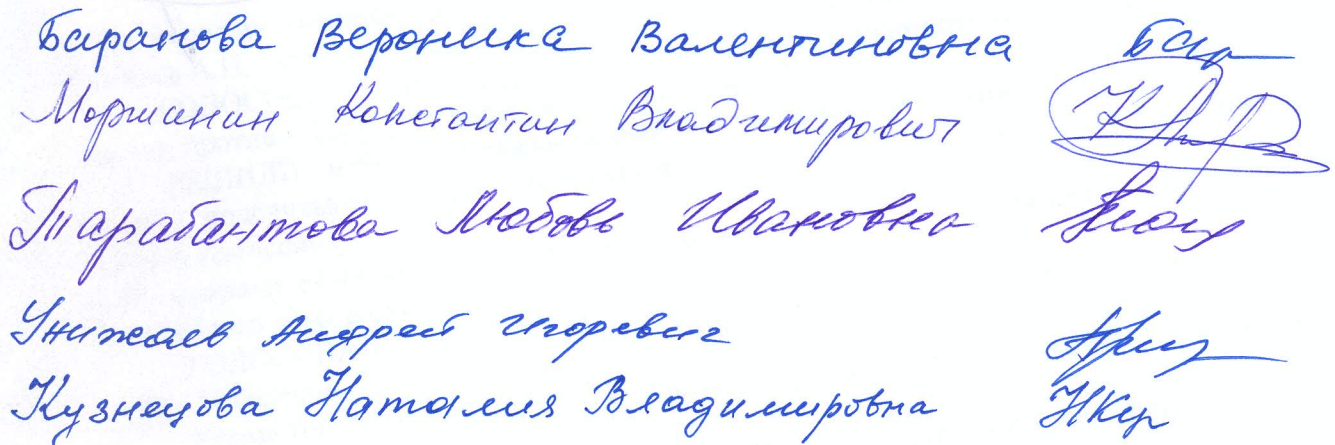 Баранова Вероника Валентиновна Бар
Моршинин Константин Владимирович
Тарабантова Любовь Ивановна
Унижаев Андрей Игоревич
Кузнецова Наталия Владимировна НКуз